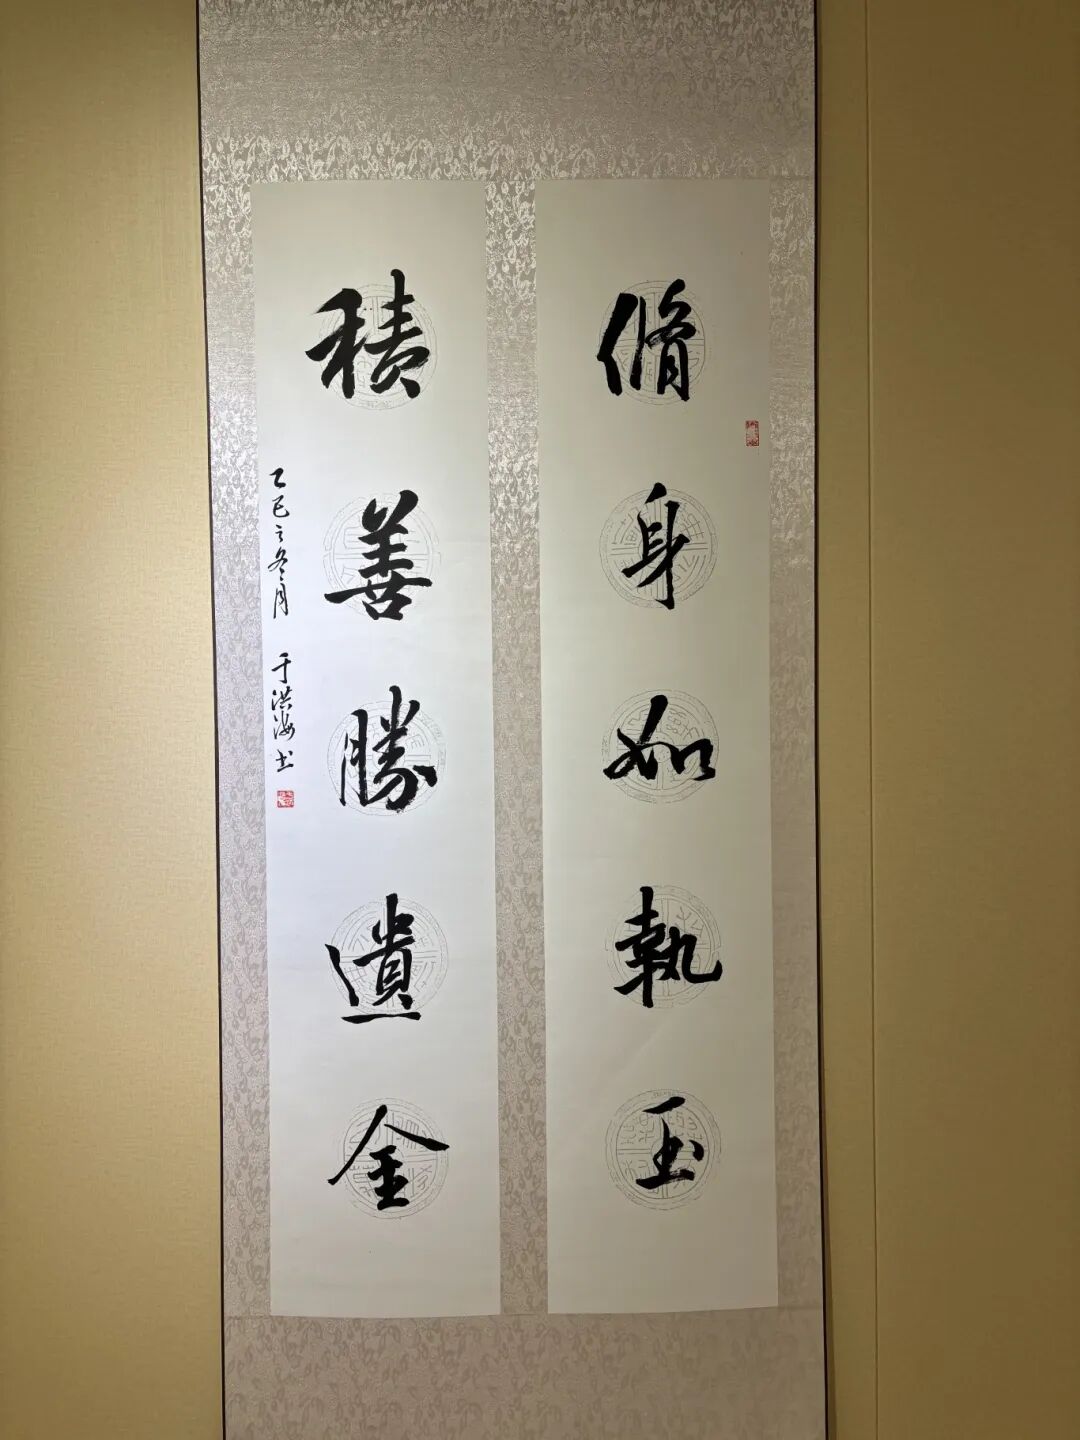 脩身如執玉
積善勝遺金
乙巳之冬月 于洪海书